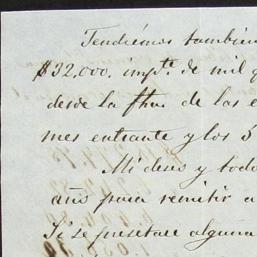 Tendrémos tambien
$32,000. impte. de mil q
desde la fha. de las e
mes entrante y los 5
Mi deseo y todo
año para remitir a
Si se presentare alguna